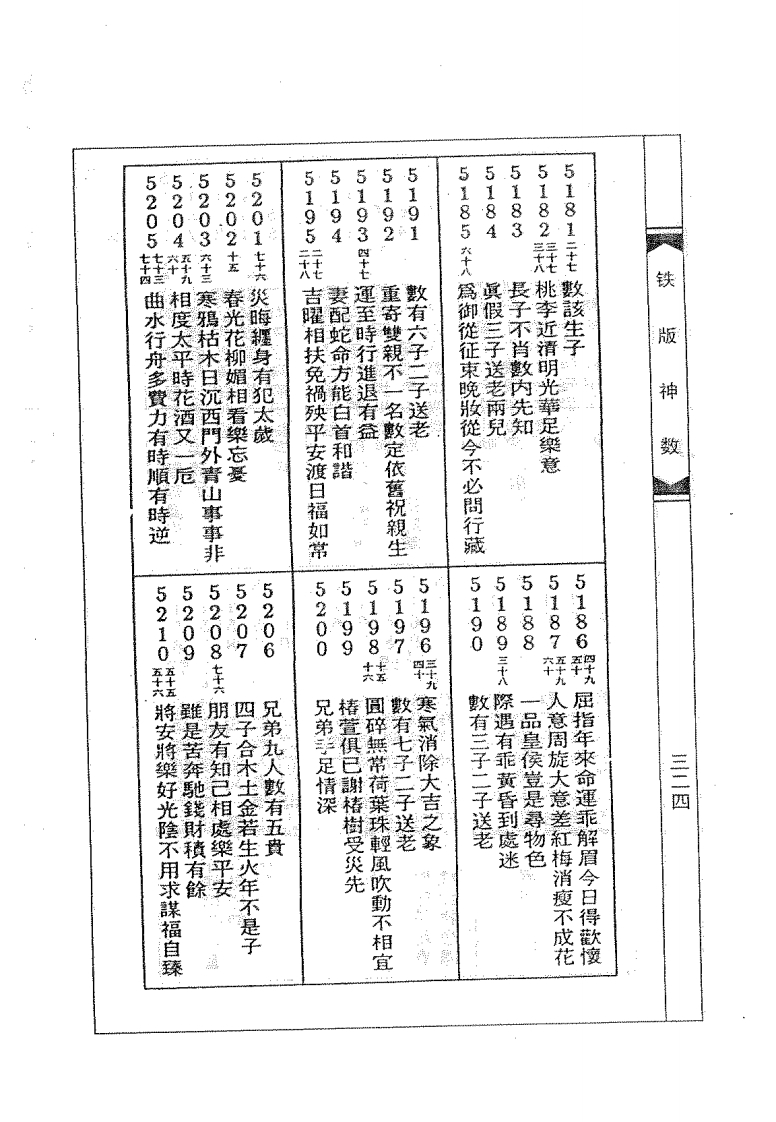 铁版神数
三二四
5181 二十七 數該生子
5182 三十七 三十八 桃李近清明光華足樂意
5183 長子不肖數內先知
5184 眞假三子送老兩兒
5185 六十八 爲御從征東晚妝從今不必問行藏
5186 四十九 五十 屈指年來命運乖解眉今日得歡懷
5187 五十九 六十 人意周旋大意差紅梅消瘦不成花
5188 一品皇侯豈是尋物色
5189 三十八 際遇有乖黃昏到處迷
5190 數有三子二子送老
5191 數有六子二子送老
5192 重寄雙親不一名數定依舊祝親生
5193 四十七 運至時行進退有益
5194 妻配蛇命方能白首和諧
5195 二十七 二十八 吉曜相扶免禍殃平安渡日福如常
5196 三十九 四十 寒氣消除大吉之象
5197 數有七子二子送老
5198 十五 十六 圓碎無常荷葉珠輕風吹動不相宜
5199 椿萱俱已謝椿樹受災先
5200 兄弟手足情深
5201 七十六 災晦纏身有犯太歲
5202 十五 春光花柳媚相看樂忘憂
5203 六十三 寒鴉枯木日沉西門外青山事事非
5204 五十九 六十 相度太平時花酒又一卮
5205 七十三 七十四 曲水行舟多費力有時順有時逆
5206 兄弟九人數有五貴
5207 四子合木土金若生火年不是子
5208 七十六 朋友有知己相處樂平安
5209 雖是苦奔馳錢財積有餘
5210 五十五 五十六 將安將樂好光陰不用求謀福自臻